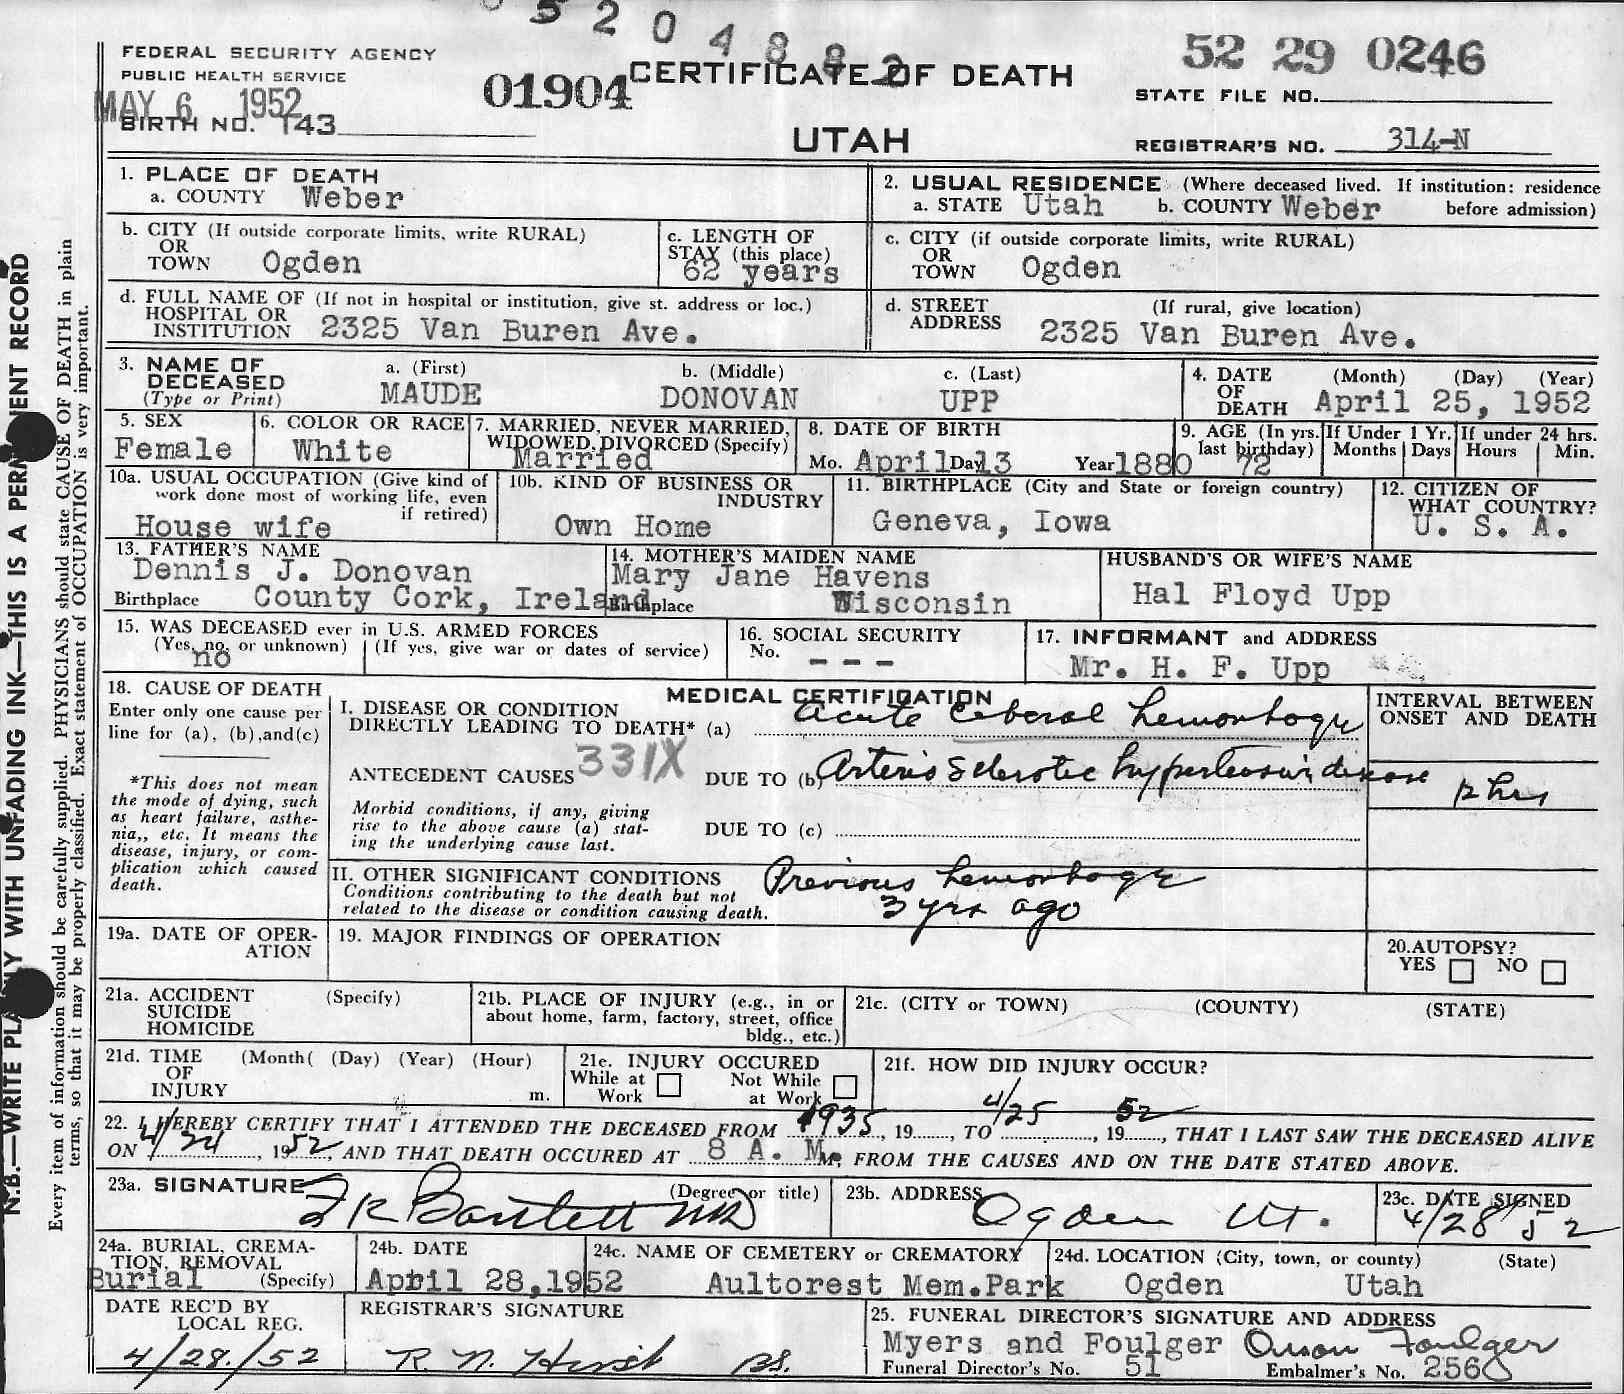 5 2 0 4 8 8 2
52 29 0246
FEDERAL SECURITY AGENCY
PUBLIC HEALTH SERVICE
MAY 6 1952
BIRTH NO. 143
01904
CERTIFICATE OF DEATH
UTAH
STATE FILE NO.
REGISTRAR'S NO. 314-N
N.B.—WRITE PLAINLY WITH UNFADING INK—THIS IS A PERMANENT RECORD
Every item of information should be carefully supplied. PHYSICIANS should state CAUSE OF DEATH in plain
terms, so that it may be properly classified. Exact statement of OCCUPATION is very important.
1. PLACE OF DEATH
a. COUNTY Weber
2. USUAL RESIDENCE (Where deceased lived. If institution: residence
a. STATE Utah b. COUNTY Weber before admission)
b. CITY (If outside corporate limits, write RURAL)
OR
TOWN Ogden
c. LENGTH OF
STAY (this place)
62 years
c. CITY (if outside corporate limits, write RURAL)
OR
TOWN Ogden
d. FULL NAME OF (If not in hospital or institution, give st. address or loc.)
HOSPITAL OR
INSTITUTION 2325 Van Buren Ave.
d. STREET (If rural, give location)
ADDRESS 2325 Van Buren Ave.
3. NAME OF a. (First) b. (Middle) c. (Last)
DECEASED
(Type or Print) MAUDE DONOVAN UPP
4. DATE (Month) (Day) (Year)
OF
DEATH April 25, 1952
5. SEX
Female
6. COLOR OR RACE
White
7. MARRIED, NEVER MARRIED,
WIDOWED, DIVORCED (Specify)
Married
8. DATE OF BIRTH
Mo. April Day 13 Year 1880
9. AGE (In yrs.
last birthday)
72
If Under 1 Yr.
Months Days
If under 24 hrs.
Hours Min.
10a. USUAL OCCUPATION (Give kind of
work done most of working life, even
if retired)
House wife
10b. KIND OF BUSINESS OR
INDUSTRY
Own Home
11. BIRTHPLACE (City and State or foreign country)
Geneva, Iowa
12. CITIZEN OF
WHAT COUNTRY?
U. S. A.
13. FATHER'S NAME
Dennis J. Donovan
Birthplace County Cork, Ireland
14. MOTHER'S MAIDEN NAME
Mary Jane Havens
Birthplace Wisconsin
HUSBAND'S OR WIFE'S NAME
Hal Floyd Upp
15. WAS DECEASED ever in U.S. ARMED FORCES
(Yes, no, or unknown) (If yes, give war or dates of service)
no
16. SOCIAL SECURITY
No. - - -
17. INFORMANT and ADDRESS
Mr. H. F. Upp
18. CAUSE OF DEATH
Enter only one cause per
line for (a), (b),and(c)
*This does not mean
the mode of dying, such
as heart failure, asthe-
nia,, etc. It means the
disease, injury, or com-
plication which caused
death.
MEDICAL CERTIFICATION
I. DISEASE OR CONDITION
DIRECTLY LEADING TO DEATH* (a) Acute Cerberal hemorhage
ANTECEDENT CAUSES 331X DUE TO (b) Arterio Sclerotic hypertensive disease
Morbid conditions, if any, giving
rise to the above cause (a) stat-
ing the underlying cause last.
DUE TO (c)
INTERVAL BETWEEN
ONSET AND DEATH
12 hrs
II. OTHER SIGNIFICANT CONDITIONS
Conditions contributing to the death but not
related to the disease or condition causing death.
Previous hemorhage
3 yrs ago
19a. DATE OF OPER-
ATION
19. MAJOR FINDINGS OF OPERATION
20.AUTOPSY?
YES NO
21a. ACCIDENT (Specify)
SUICIDE
HOMICIDE
21b. PLACE OF INJURY (e.g., in or
about home, farm, factory, street, office
bldg., etc.)
21c. (CITY or TOWN) (COUNTY) (STATE)
21d. TIME (Month( (Day) (Year) (Hour)
OF
INJURY m.
21e. INJURY OCCURED
While at Not While
Work at Work
21f. HOW DID INJURY OCCUR?
22. I HEREBY CERTIFY THAT I ATTENDED THE DECEASED FROM 1935, 19......, TO 4/25, 19 52, THAT I LAST SAW THE DECEASED ALIVE
ON 4/24, 1952, AND THAT DEATH OCCURED AT 8 A. M. M., FROM THE CAUSES AND ON THE DATE STATED ABOVE.
23a. SIGNATURE (Degree or title)
F R Bartlett MD
23b. ADDRESS
Ogden Ut.
23c. DATE SIGNED
4/28 52
24a. BURIAL, CREMA-
TION, REMOVAL
Burial (Specify)
24b. DATE
April 28,1952
24c. NAME OF CEMETERY or CREMATORY
Aultorest Mem.Park
24d. LOCATION (City, town, or county) (State)
Ogden Utah
DATE REC'D BY
LOCAL REG.
4/28./52
REGISTRAR'S SIGNATURE
R. N. Hirst
25. FUNERAL DIRECTOR'S SIGNATURE AND ADDRESS
Myers and Foulger Orson Foulger
Funeral Director's No. 51 Embalmer's No. 256